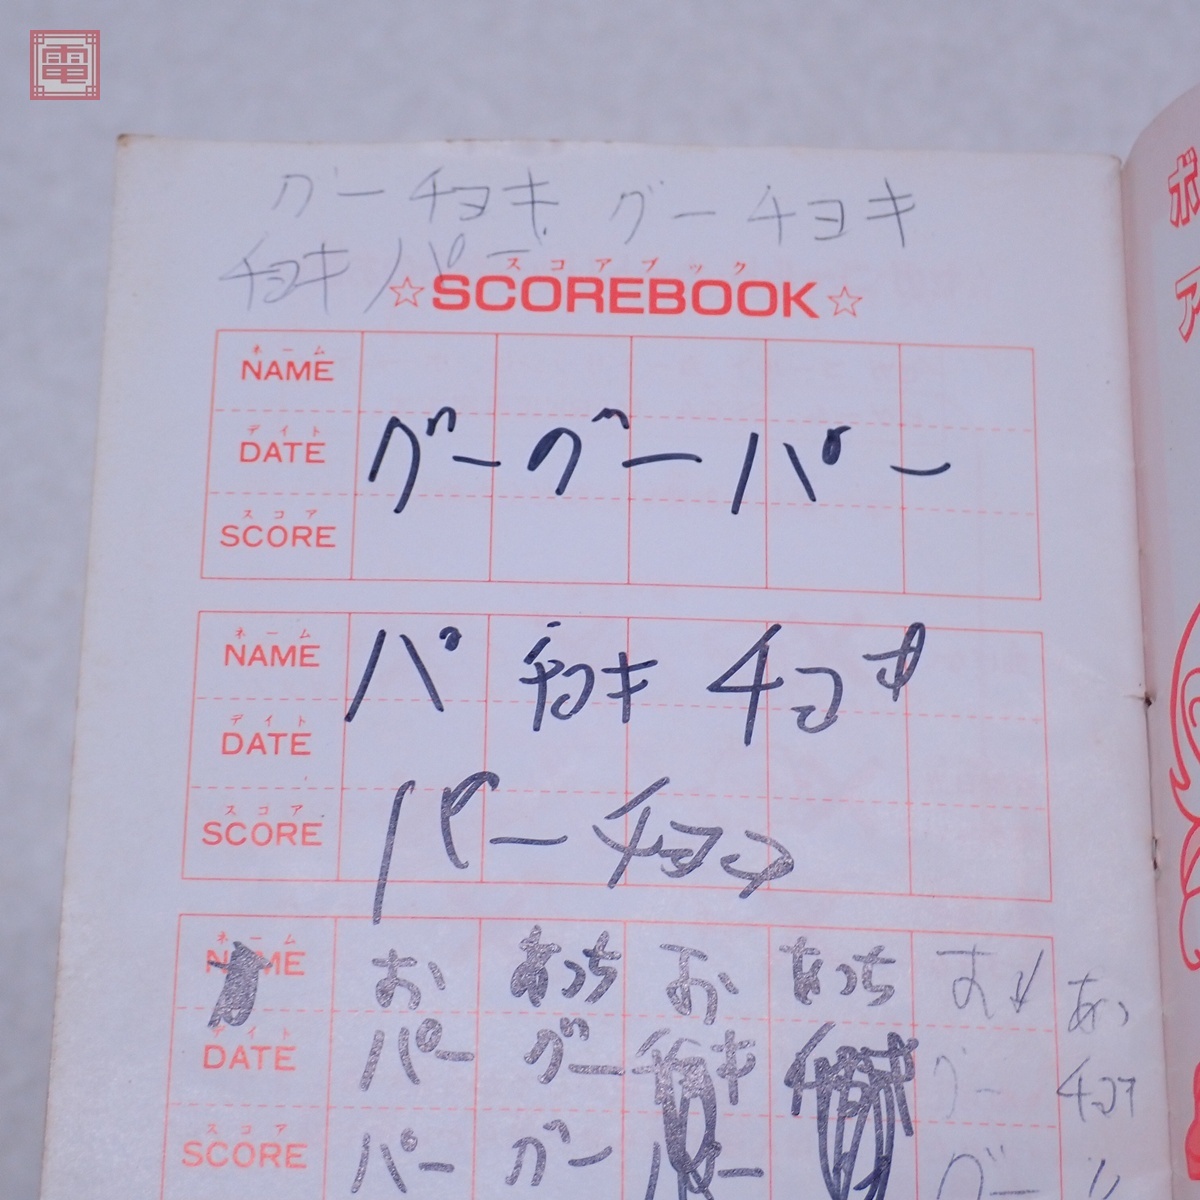 電
グーチョキ グーチョキ
チョキパー
スコアブック
☆SCOREBOOK☆
ネーム
NAME
デイト
DATE
グーグーパー
スコア
SCORE
ネーム
NAME
パ チョキ チョキ
デイト
DATE
スコア
SCORE
パーチョコ
ネーム
NAME
お あっち お あっち
あっ
デイト
DATE
パー グー チョキ
グー
スコア
SCORE
パー グー パー
グー
ボ
ア